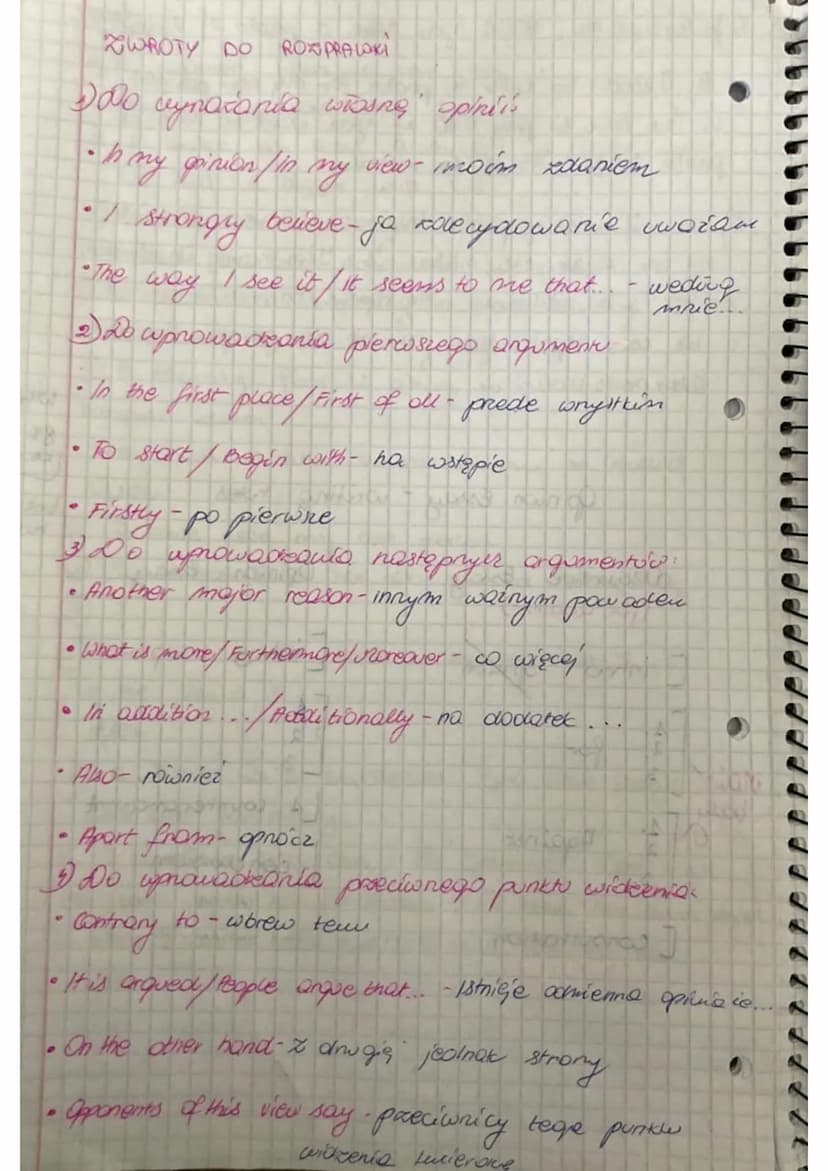 ZWROTY DO ROZPRAWKI
1) Do wyrażania własnej opinii:
• In my opinion/in my view - moim zdaniem
• I strongly believe - ja zdecydowanie uważam
• The way I see it/It seems to me that... - według
mnie...
2) Do wprowadzania pierwszego argumentu
• In the first place/First of all - przede wszystkim
• To start / Begin with - na wstępie
• Firstly - po pierwsze
3) Do wprowadzania następnych argumentów:
• Another major reason - innym ważnym powodem
• What is more/Furthermore/Moreover - co więcej
• In addition .../Additionally - na dodatek ...
• Also - również
• Apart from - oprócz
4) Do wprowadzania przeciwnego punktu widzenia:
• Contrary to - wbrew temu
• It is argued/People argue that... - Istnieje odmienna opinia że...
• On the other hand - z drugiej jednak strony
• Opponents of this view say - przeciwnicy tego punktu
widzenia twierdzą